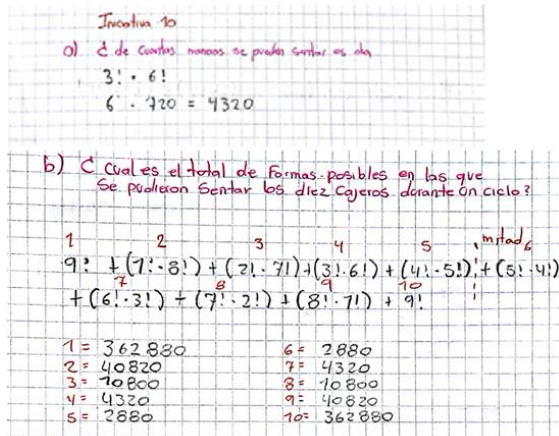 Iniciativa 10
a) ¿ de cuantas maneras se pueden sentar es día
3! · 6!
6 · 720 = 4320
b) ¿ Cual es el total de formas posibles en las que
se pudieron sentar los diez Cajeros durante un ciclo?
1 2 3 4 5 mitad 6
9! + (1! · 8!) + (2! · 7!) + (3! · 6!) + (4! · 5!) + (5! · 4!)
7 8 9 10
+ (6! · 3!) + (7! · 2!) + (8! · 1!) + 9!
1 = 362880 6 = 2880
2 = 40820 7 = 4320
3 = 10800 8 = 10800
4 = 4320 9 = 40820
5 = 2880 10 = 362880